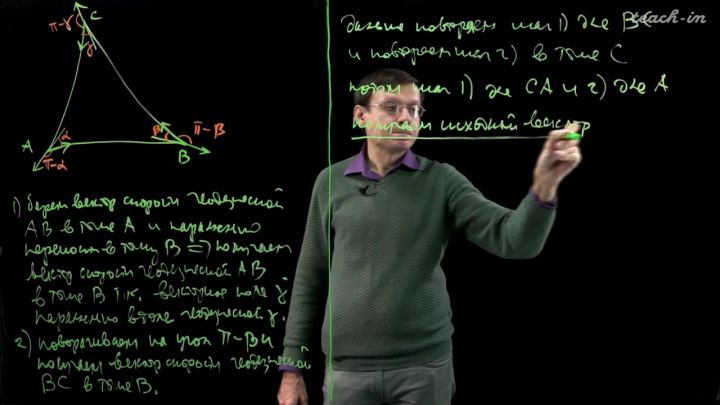 C
π-γ
γ
A
α
π-α
β
π-β
B
1) берем вектор скорости геодезической
AB в точке A и параллельно
переносим в точку B => получаем
вектор скорости геодезической AB
в точке B т.к. векторное поле γ̇
параллельно вдоль геодезической γ.
2) поворачиваем на угол π-β и
получаем вектор скорости геодезической
BC в точке B.
teach-in
дальше повторяем шаг 1) для BC
и повторяем шаг 2) в точке C
потом шаг 1) для CA и 2) для A
получаем исходный вектор